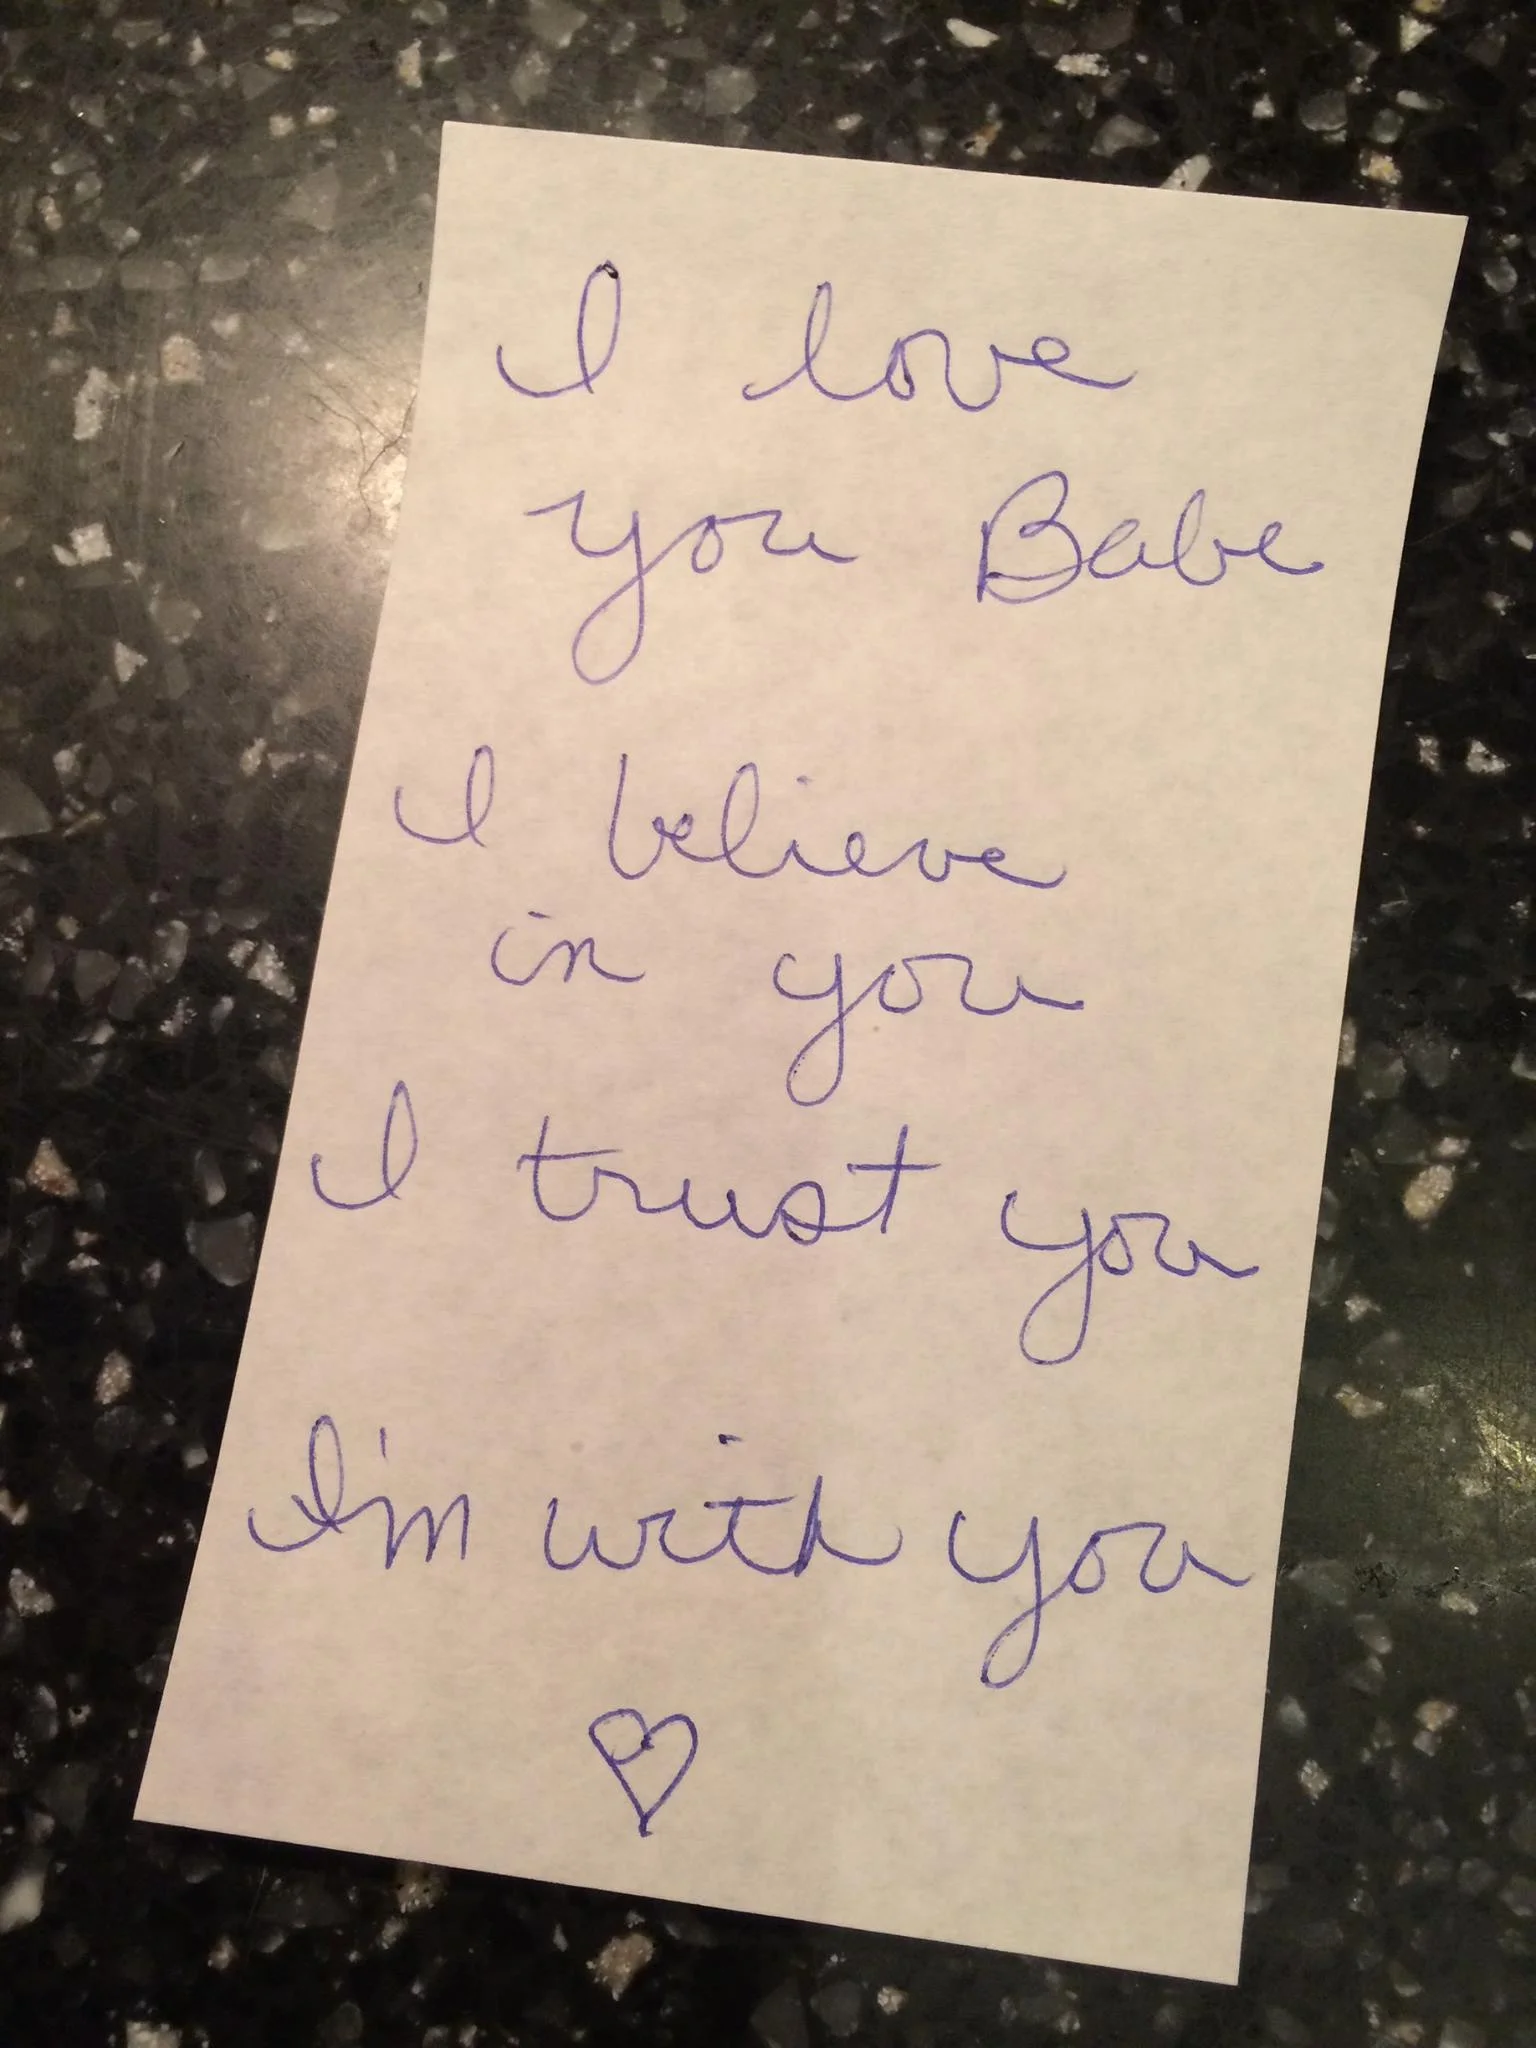 I love
you Babe
I believe
in you
I trust you
I'm with you